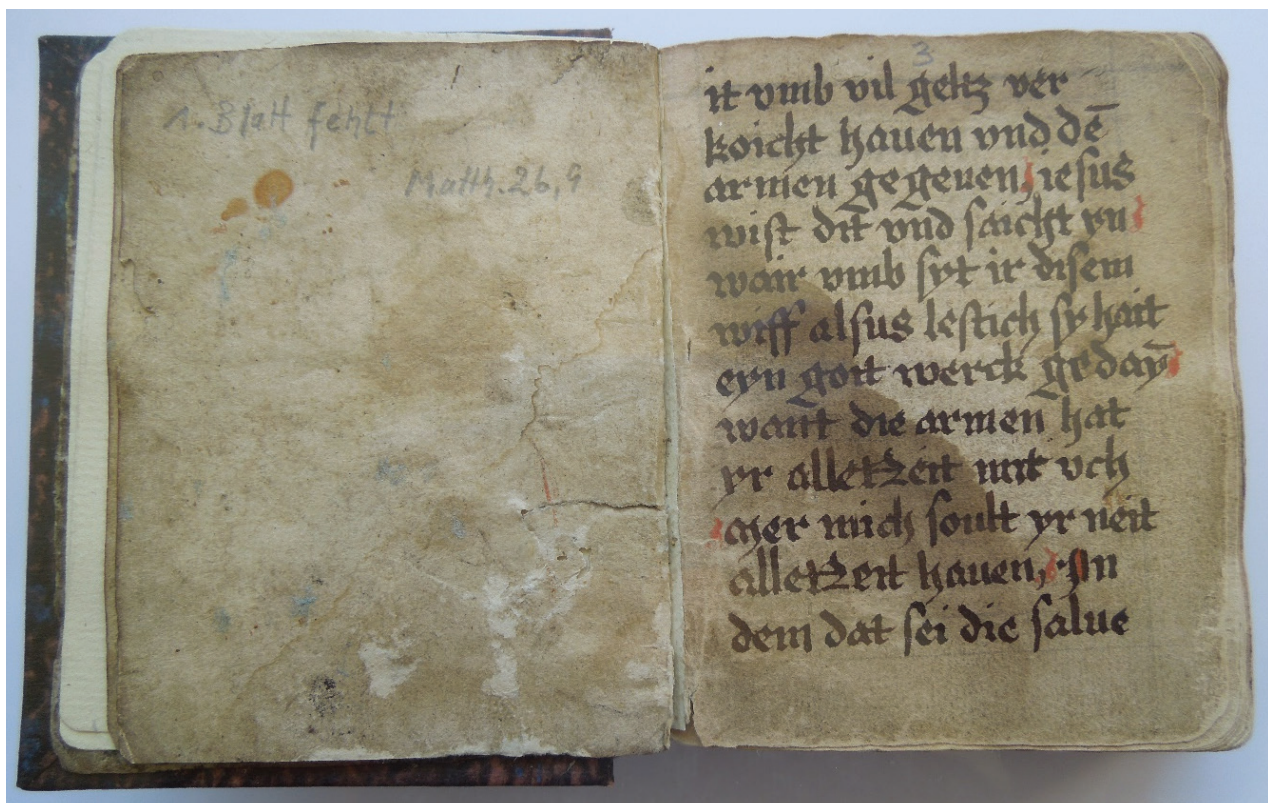 1. Blatt fehlt
Matth. 26,9
3
it vmb vil geltz ver
koicht hauen vnd dē
armen gegeuen, iesus
wist dit vnd saicht yn
wair vmb syt ir disem
wiff alsus lestich sy hait
eyn goit werck geday̅
want die armen hat
yr alletzeit mit vch
mer mich soult yr neit
alletzeit hauen, In
dem dat sei die salue